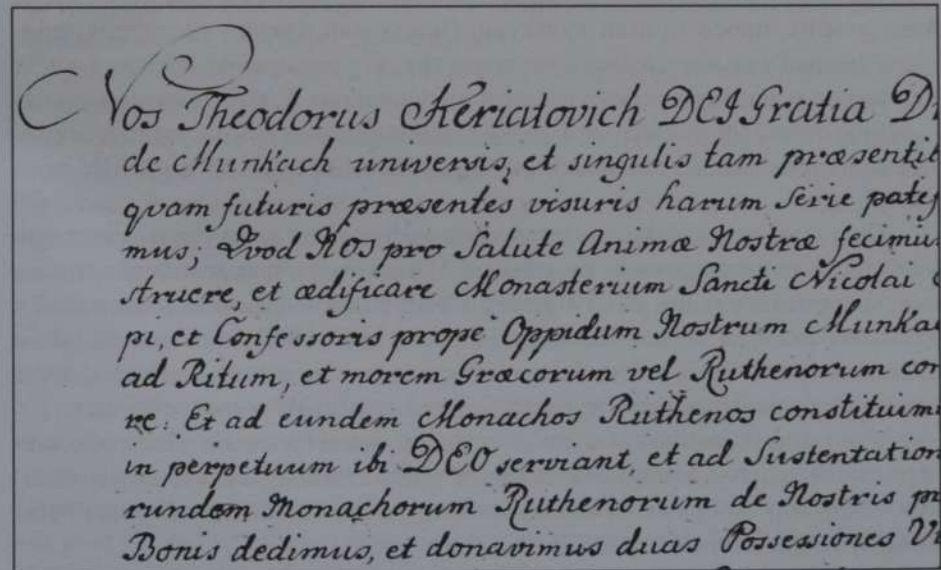 Nos Theodorus Keriatovich DEI Gratia D
de Munkach universis, et singulis tam præsentib
quam futuris præsentes visuris harum Serie patef
mus; Qvod NOS pro Salute Animæ Nostræ fecimu
struere, et ædificare Monasterium Sancti Nicolai
pi, et Confessoris prope Oppidum Nostrum Munka
ad Ritum, et morem Græcorum vel Ruthenorum con
re: Et ad eundem Monachos Ruthenos constituim
in perpetuum ibi DEO serviant, et ad Sustentation
rundem Monachorum Ruthenorum de Nostris pr
Bonis dedimus, et donavimus duas Possessiones Vi